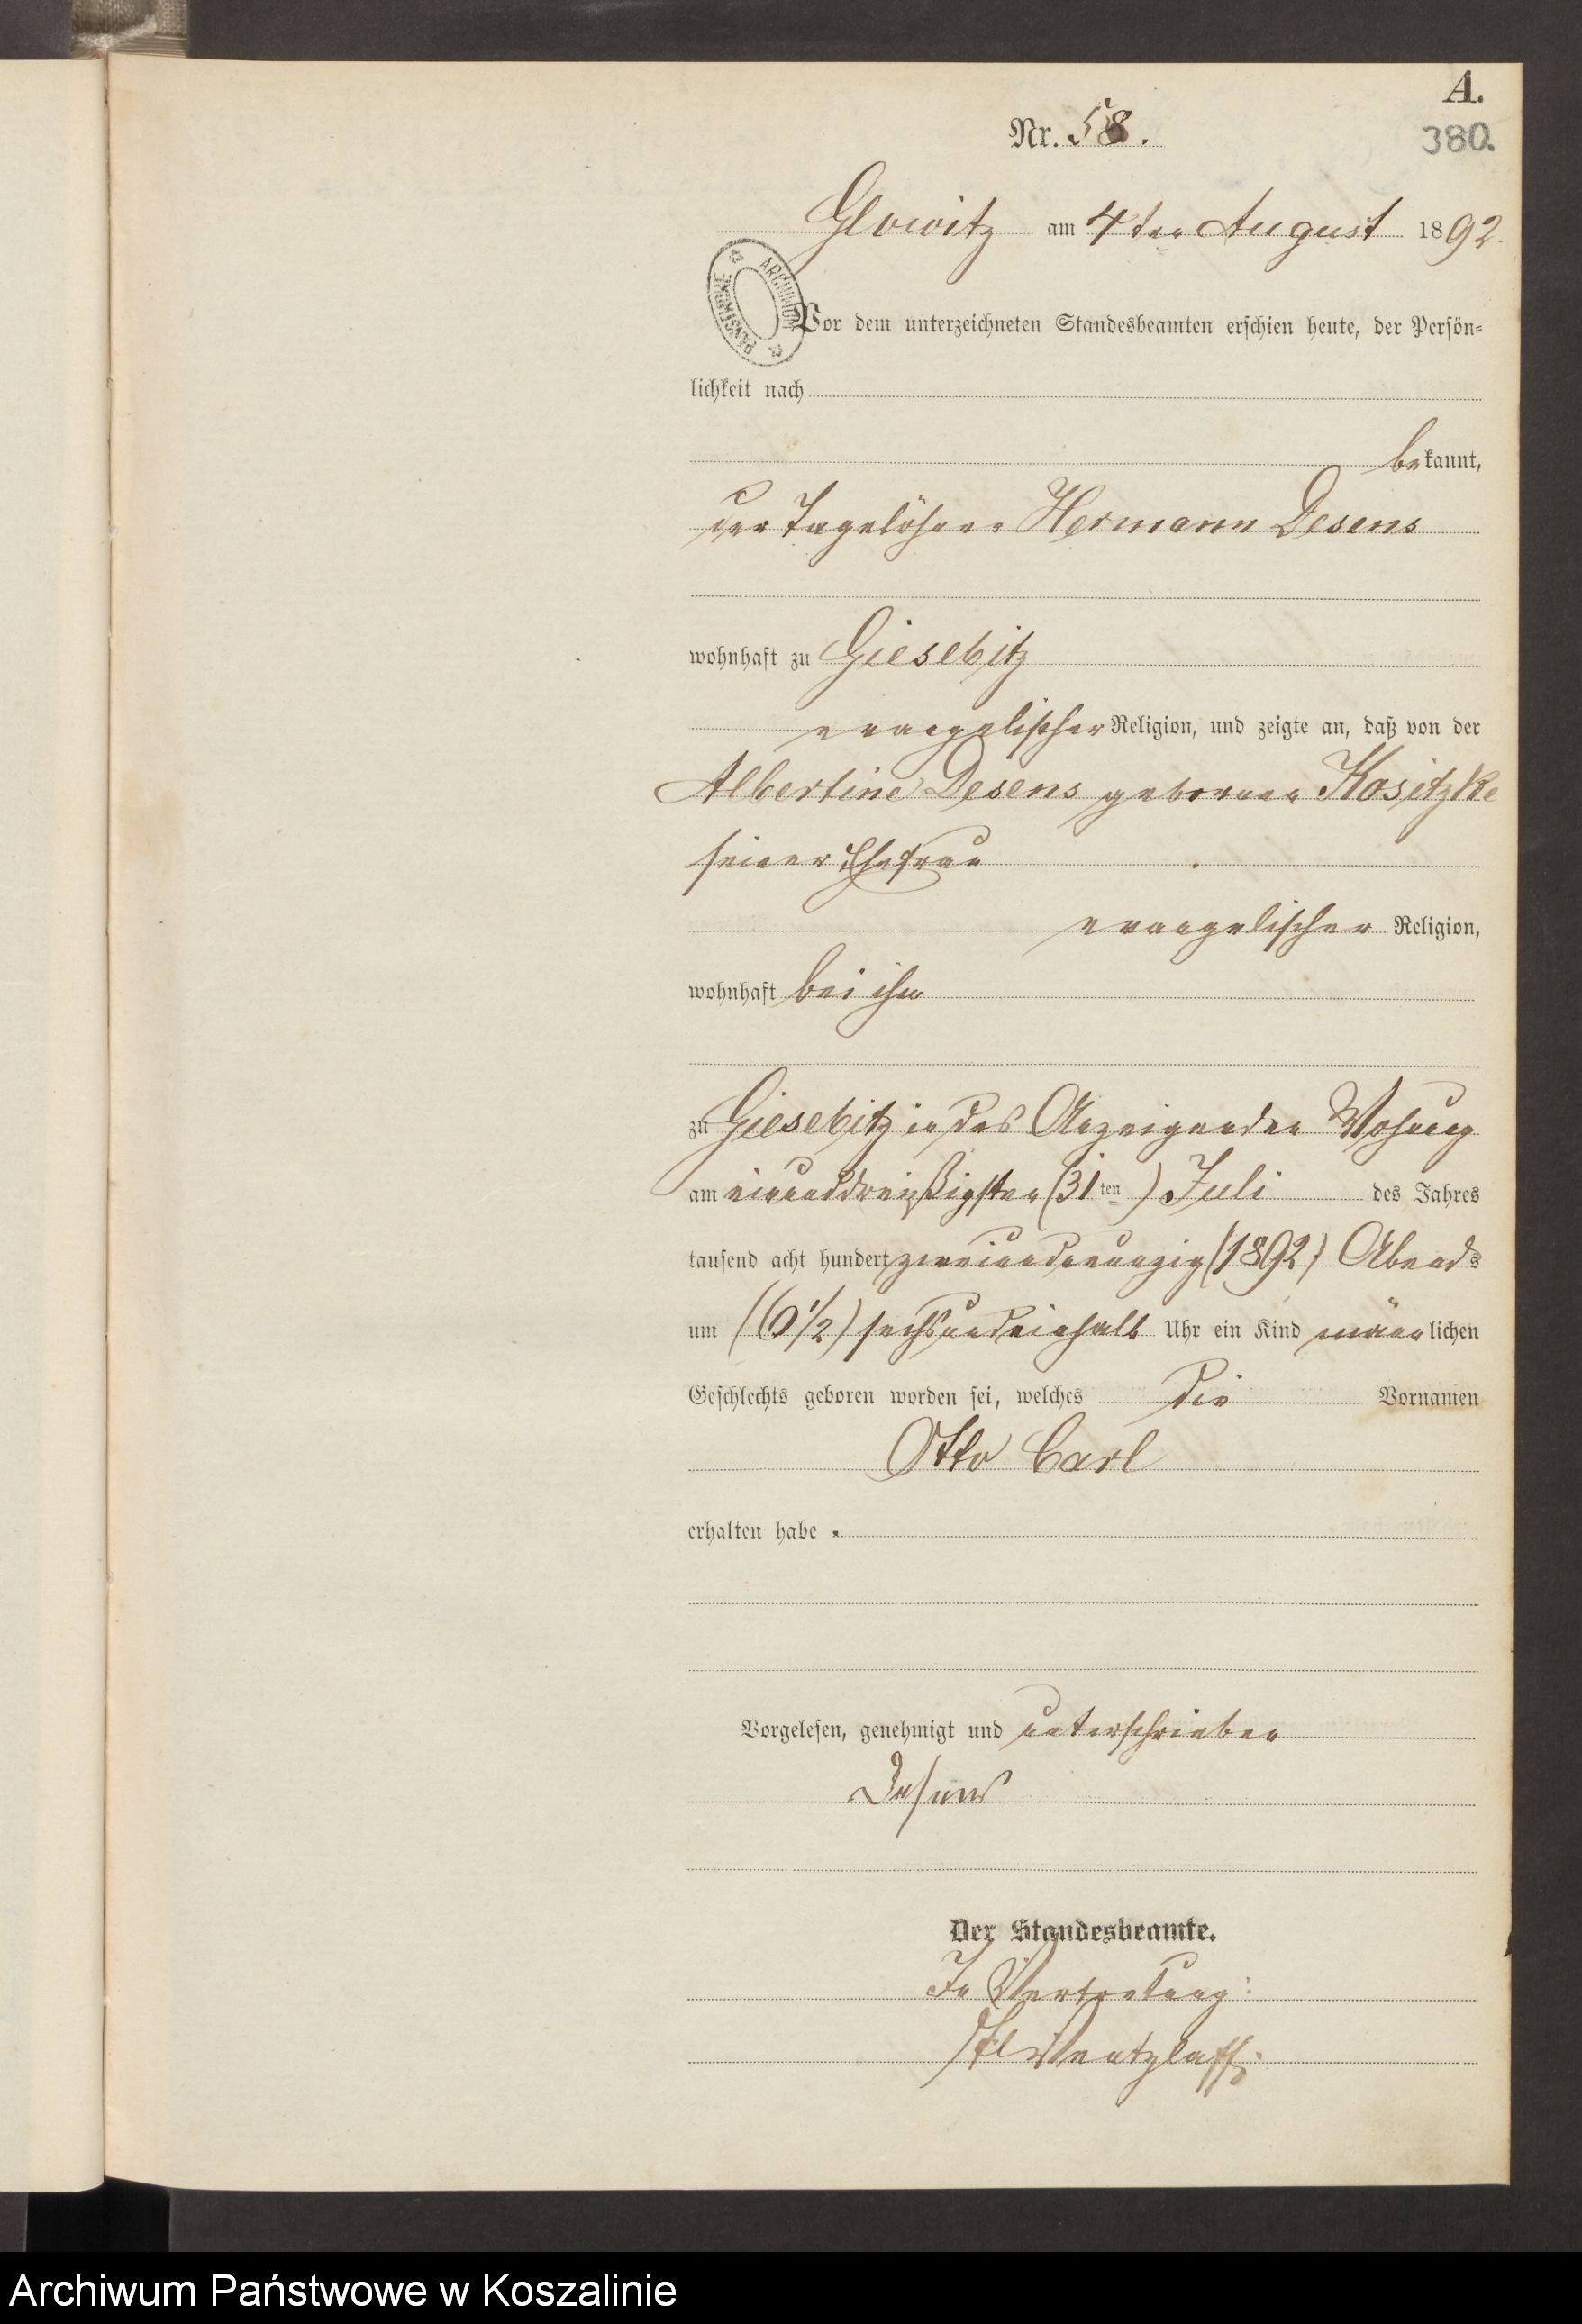 A.
Nr. 58.
380.
Glowitz am 4ten August 1892.
ARCHIWUM PAŃSTWOWE
Vor dem unterzeichneten Standesbeamten erschien heute, der Persön=
lichkeit nach
bekannt,
der Tagelöhner Hermann Desens
wohnhaft zu Giesebitz
evangelischer Religion, und zeigte an, daß von der
Albertine Desens gebornen Kositzke
seiner Ehefrau
evangelischer Religion,
wohnhaft bei ihm
zu Giesebitz in des Anzeigenden Wohnung
am einunddreißigsten (31ten) Juli des Jahres
tausend acht hundert zweiundneunzig (1892) Abends
um (6 1/2) sechsundeinhalb Uhr ein Kind männlichen
Geschlechts geboren worden sei, welches die Vornamen
Otto Carl
erhalten habe.
Vorgelesen, genehmigt und unterschrieben
Desens
Der Standesbeamte.
In Vertretung:
Wentzlaff.
Archiwum Państwowe w Koszalinie